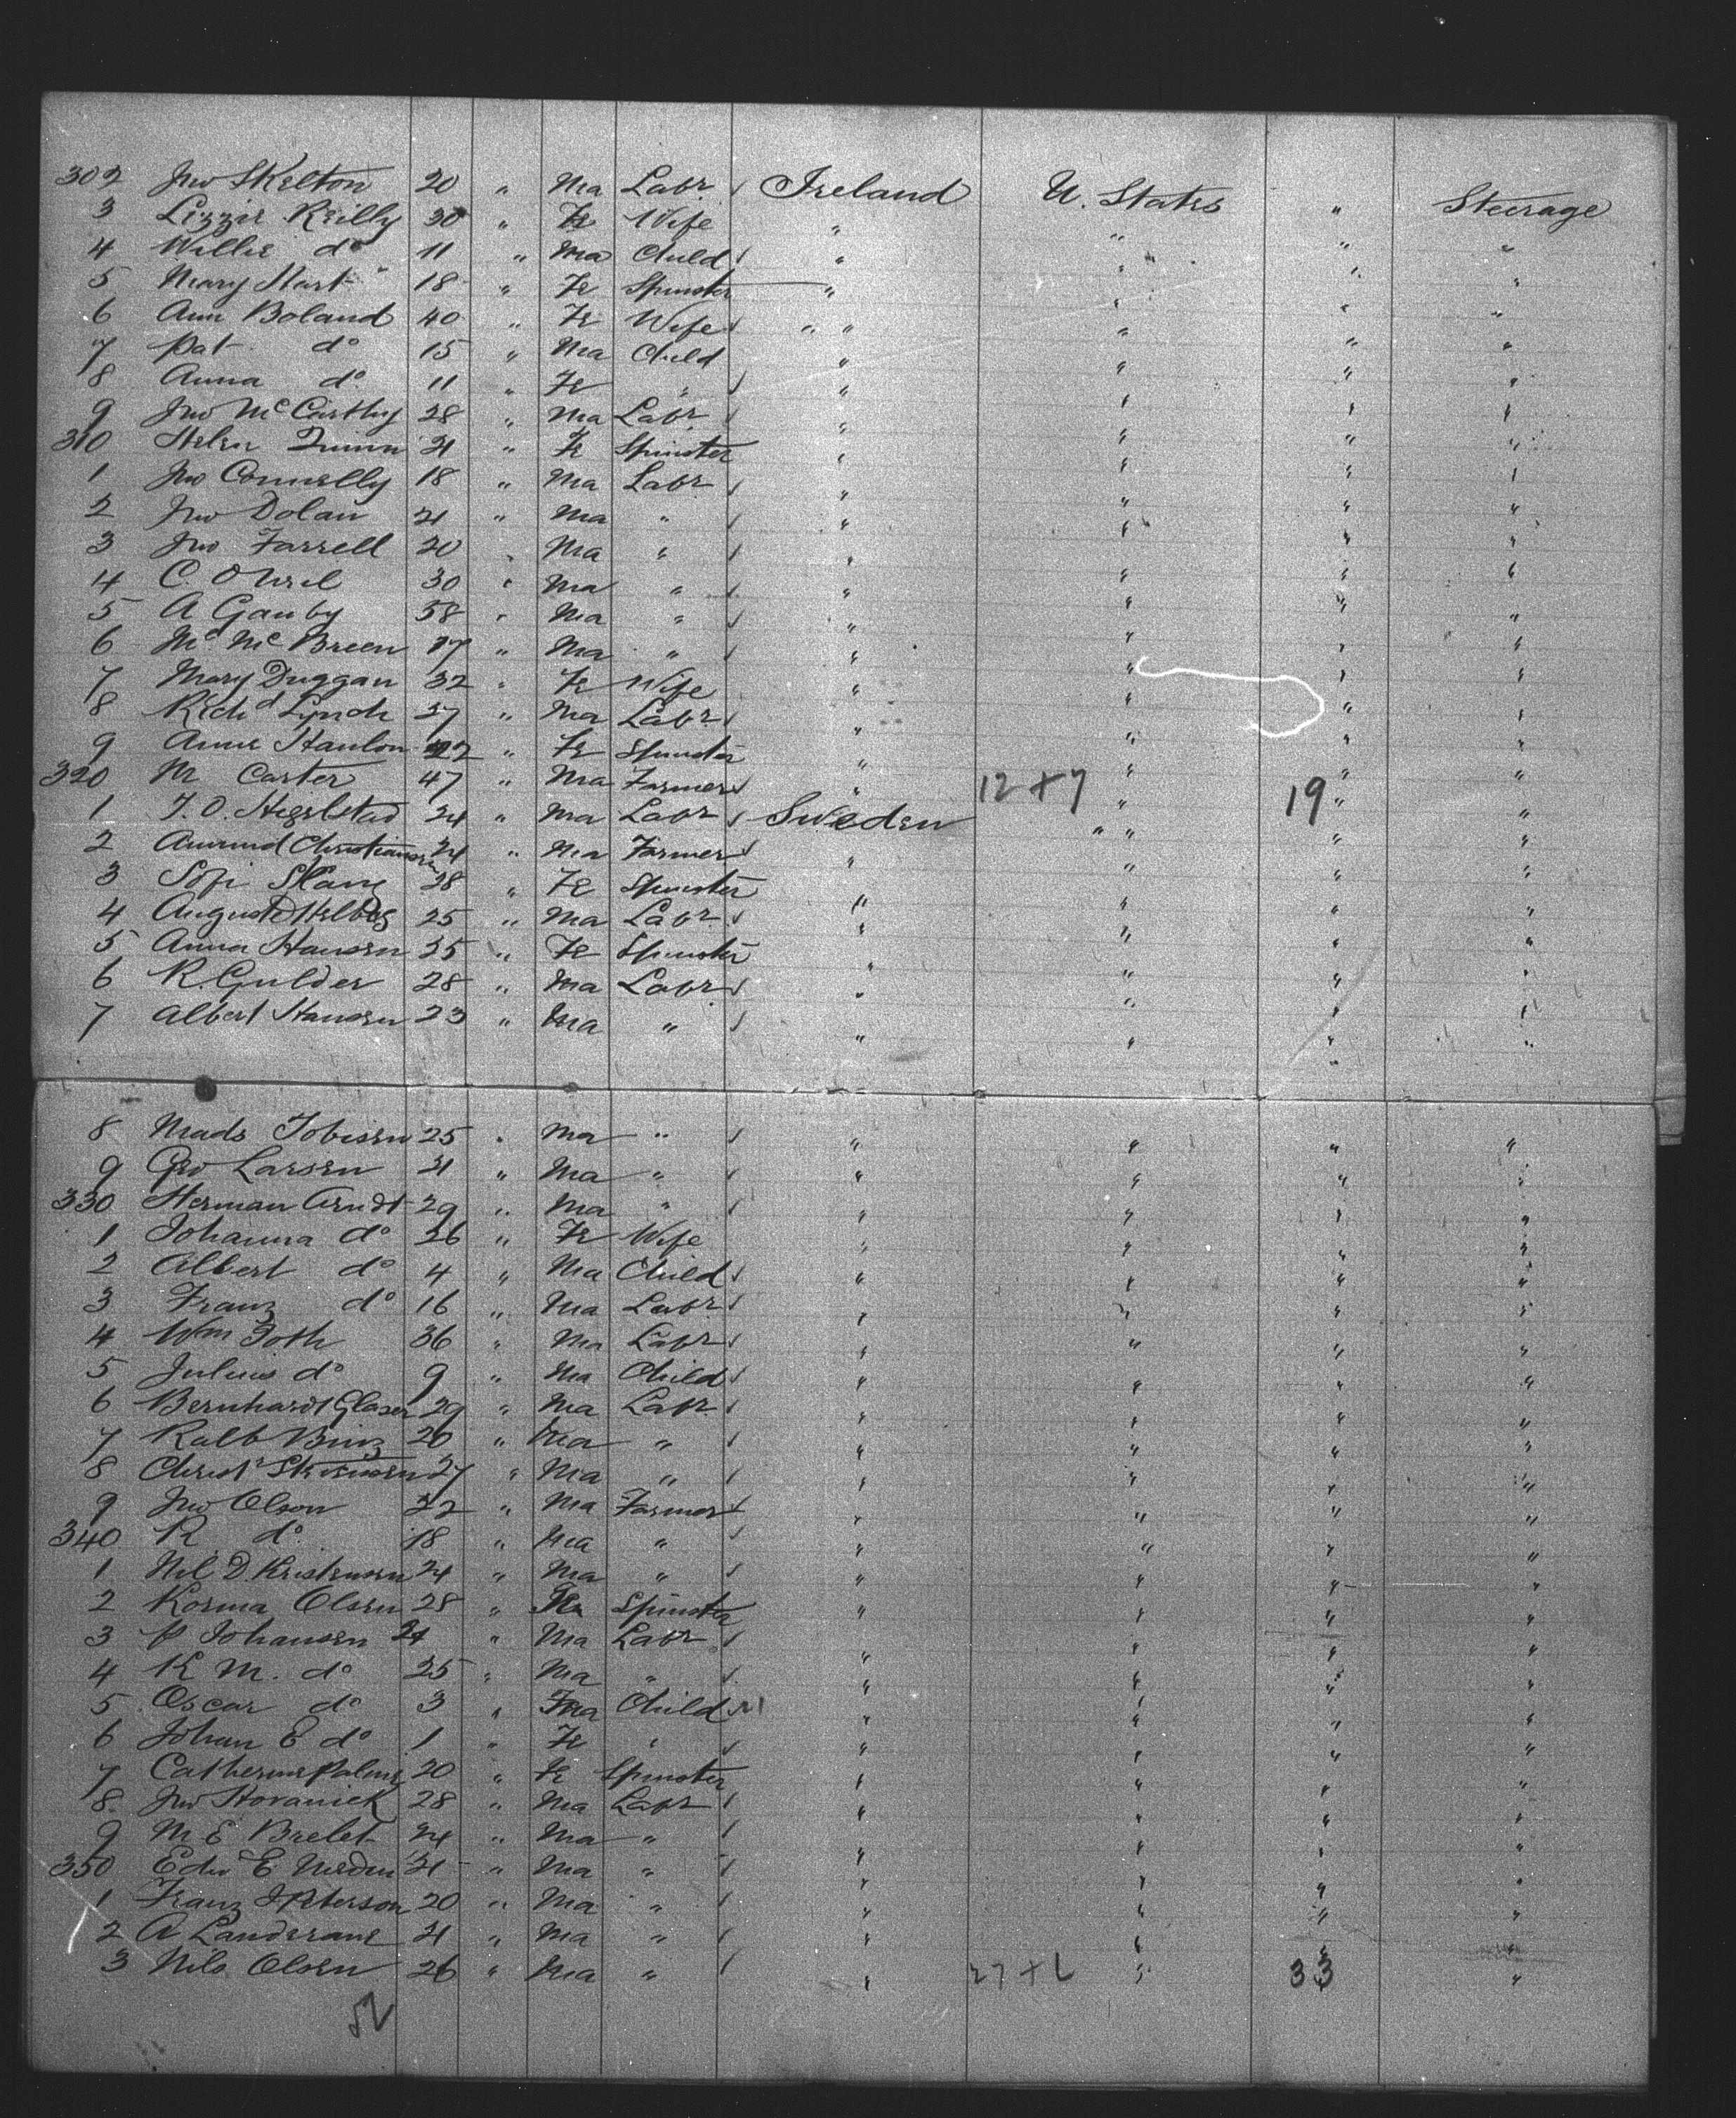 302 Jno Skelton 20 " Ma Labr Ireland U. States " Steerage
3 Lizzie Reilly 30 " Fe Wife " " " "
4 Willie do 11 " Ma Child " " " "
5 Mary Hart 18 " Fe Spinster " " " "
6 Ann Boland 40 " Fe Wife " " " "
7 Pat do 15 " Ma Child " " " "
8 Anna do 11 " Fe " " " " "
9 Jno McCarthy 28 " Ma Labr " " " "
310 Helen Quinn 21 " Fe Spinster " " " "
1 Jno Connelly 18 " Ma Labr " " " "
2 Jno Dolan 21 " Ma " " " " "
3 Jno Farrell 20 " Ma " " " " "
4 C. O Neil 30 " Ma " " " " "
5 A Gauby 58 " Ma " " " " "
6 Mc McBreen 17 " Ma " " " " "
7 Mary Duggan 32 " Fe Wife " " " "
8 Richd Lynch 27 " Ma Labr " " " "
9 Anne Hanlon 22 " Fe Spinster " " " "
320 M Carter 47 " Ma Farmer " 12+7 " 19 " "
1 T. O. Hegelstad 24 " Ma Labr Sweden " " " "
2 Amund Christiansen 24 " Ma Farmer " " " "
3 Sofi Skang 28 " Fe Spinster " " " "
4 August Helberg 25 " Ma Labr " " " "
5 Anna Hansen 35 " Fe Spinster " " " "
6 R. Gulder 28 " Ma Labr " " " "
7 Albert Hansen 23 " Ma " " " " "
8 Mads Tobisen 25 " Ma " " " " "
9 Geo Larsen 21 " Ma " " " " "
330 Herman Arndt 29 " Ma " " " " "
1 Johanna do 26 " Fe Wife " " " "
2 Albert do 4 " Ma Child " " " "
3 Franz do 16 " Ma Labr " " " "
4 Wm Toth 36 " Ma Labr " " " "
5 Julius do 9 " Ma Child " " " "
6 Bernhardt Glaser 29 " Ma Labr " " " "
7 Kalb Binz 20 " Ma " " " " "
8 Christ 27 " Ma " " " " "
9 Jno Olson 22 " Ma Farmer " " " "
340 R do 18 " Ma " " " " "
1 Nil D. Kristensen 24 " Ma " " " " "
2 Korma Olsen 28 " Fe Spinster " " " "
3 P Johansen 24 " Ma Labr " " " "
4 K M. do 25 " Ma " " " " "
5 Oscar do 3 " Ma Child " " " "
6 Johan E do 1 " Fe " " " " "
7 Catherine Palmy 20 " Fe Spinster " " " "
8 Jno Horanick 28 " Ma Labr " " " "
9 M E Brelet 24 " Ma " " " " "
350 Edw E 21 " Ma " " " " "
1 Franz J Peterson 20 " Ma " " " " "
2 A Landerane 21 " Ma " " " " "
3 Nils Olsen 26 " Ma " " 27+6 " 33 " "
52